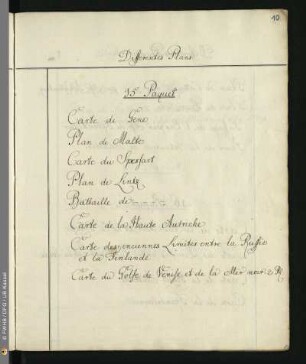 10
Differentes Plans
15e Paquet
Carte de Gene
Plan de Malte
Carte du Spessart
Plan de Lintz
Bathaille de
Carte de la Haute Autriche
Carte des anciennes Limites entre la Russie
et la Finlande
Carte du Golfe de Venise et de la Mer noir